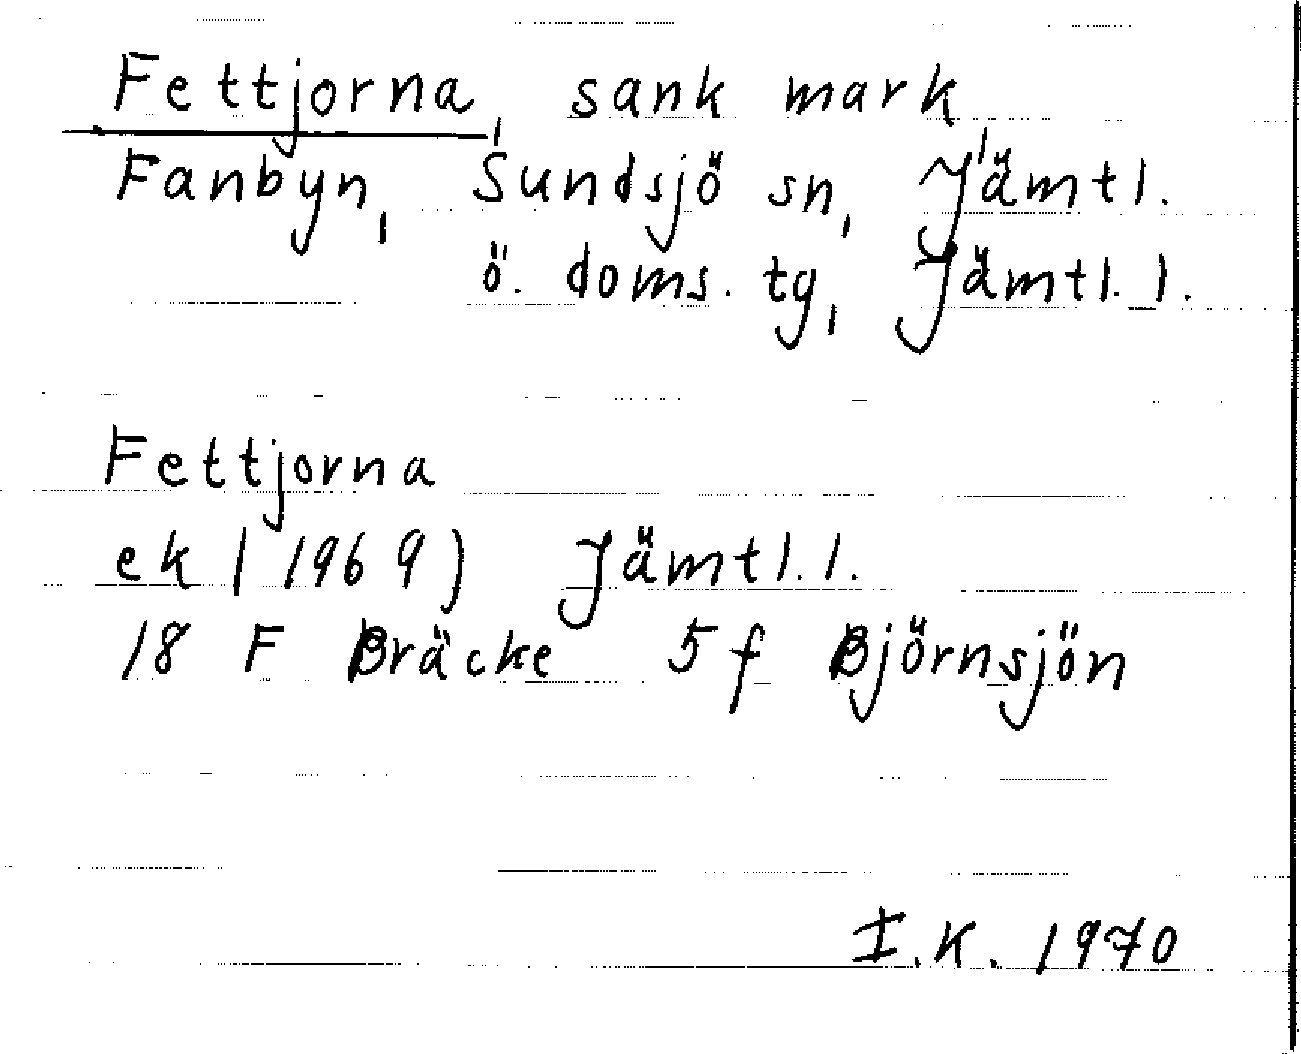 Fettjorna, sank mark,
Fanbyn, Sundsjö sn, Jämtl.
ö. doms. tg, Jämtl. l.
Fettjorna
ek (1969) Jämtl. l.
18 F Bräcke 5f Björnsjön
I.K. 1970